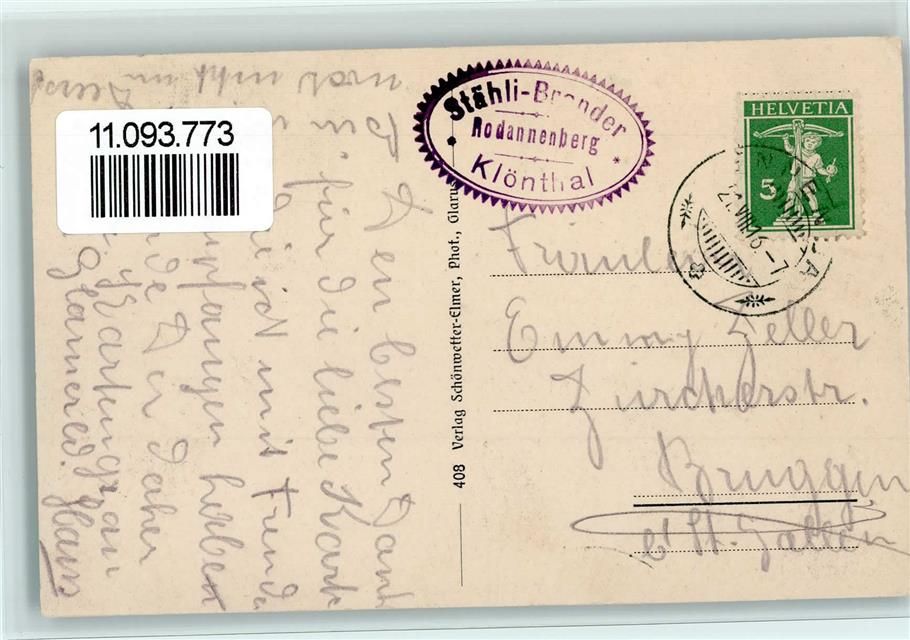 11.093.773
Stähli-Brander
Rodannenberg
Klönthal
HELVETIA
5
21.VIII.16.-7
408 Verlag Schönwetter-Elmer, Phot., Glarus
Fräulein
Emmy Zeller
Zürcherstr.
Bruggen
b/ St. Gallen
Den besten Dank
für die liebe Karte
die ich mit Freude
empfangen habe
Der daher
Glarnerld. Hans
noch nicht im